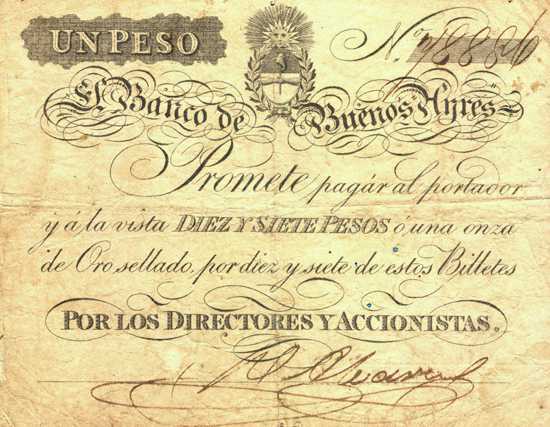 UN PESO
N.º
El Banco de Buenos Ayres
Promete pagár al portador
y á la vista DIEZ Y SIETE PESOS ó una onza
de Oro sellado, por diez y siete de estos Billetes
POR LOS DIRECTORES Y ACCIONISTAS.